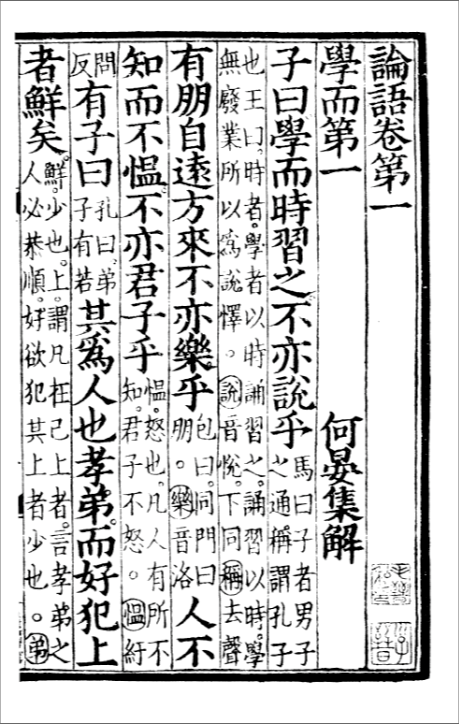 論語卷第一
學而第一 何晏集解
子曰學而時習之不亦說乎馬曰子者男子之通稱謂孔子
也王曰時者學者以時誦習之誦習以時學無廢業所以爲說懌。說音悅下同稱去聲
有朋自遠方來不亦樂乎包曰同門曰朋。樂音洛人不
知而不慍不亦君子乎慍怒也凡人有所不知君子不怒。慍紆
問反有子曰孔曰弟子有若其爲人也孝弟而好犯上
者鮮矣鮮少也上謂凡在己上者言孝弟之人必恭順好欲犯其上者少也。弟